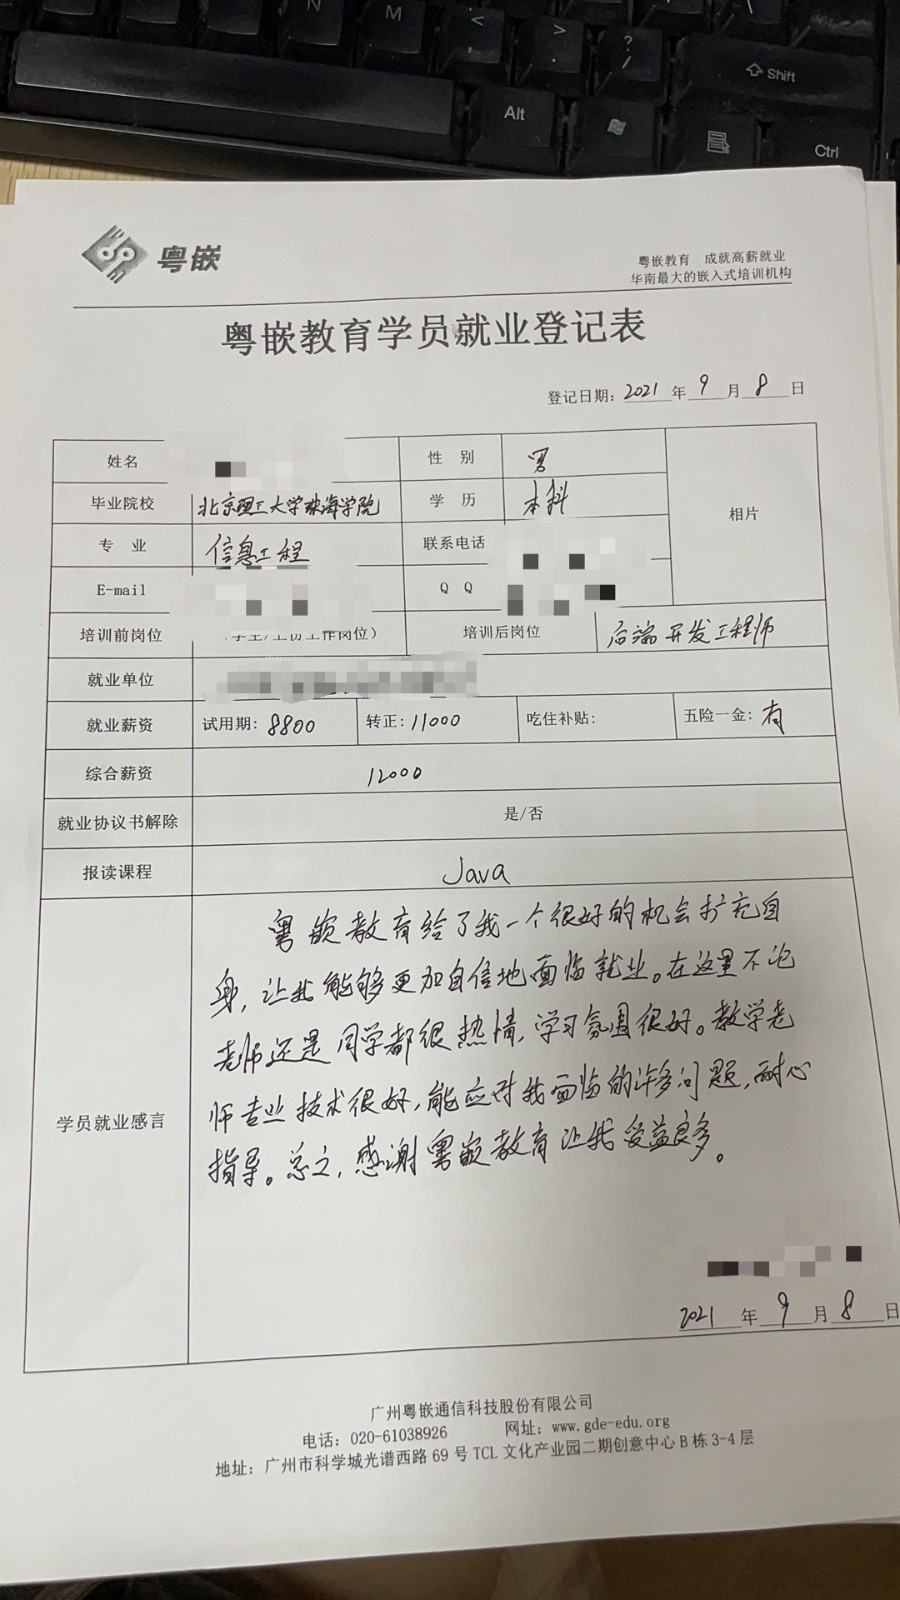 N M < , > . ? / Shift
Alt Ctrl
粤嵌
粤嵌教育 成就高薪就业
华南最大的嵌入式培训机构
粤嵌教育学员就业登记表
登记日期：2021年9月8日
姓名 性 别 男
毕业院校 北京理工大学珠海学院 学 历 本科
相片
专 业 信息工程 联系电话
E-mail Q Q
培训前岗位 培训后岗位 后端开发工程师
就业单位
就业薪资 试用期：8800 转正：11000 吃住补贴： 五险一金：有
综合薪资 12000
就业协议书解除 是/否
报读课程 Java
粤嵌教育给了我一个很好的机会扩充自
身，让我能够更加自信地面临就业。在这里不论
老师还是同学都很热情，学习氛围很好。教学老
师专业技术很好，能应对我面临的许多问题，耐心
学员就业感言
指导。总之，感谢粤嵌教育让我受益良多。
2021年9月8日
广州粤嵌通信科技股份有限公司
电话：020-61038926 网址：www.gde-edu.org
地址：广州市科学城光谱西路69号TCL文化产业园二期创意中心B栋3-4层